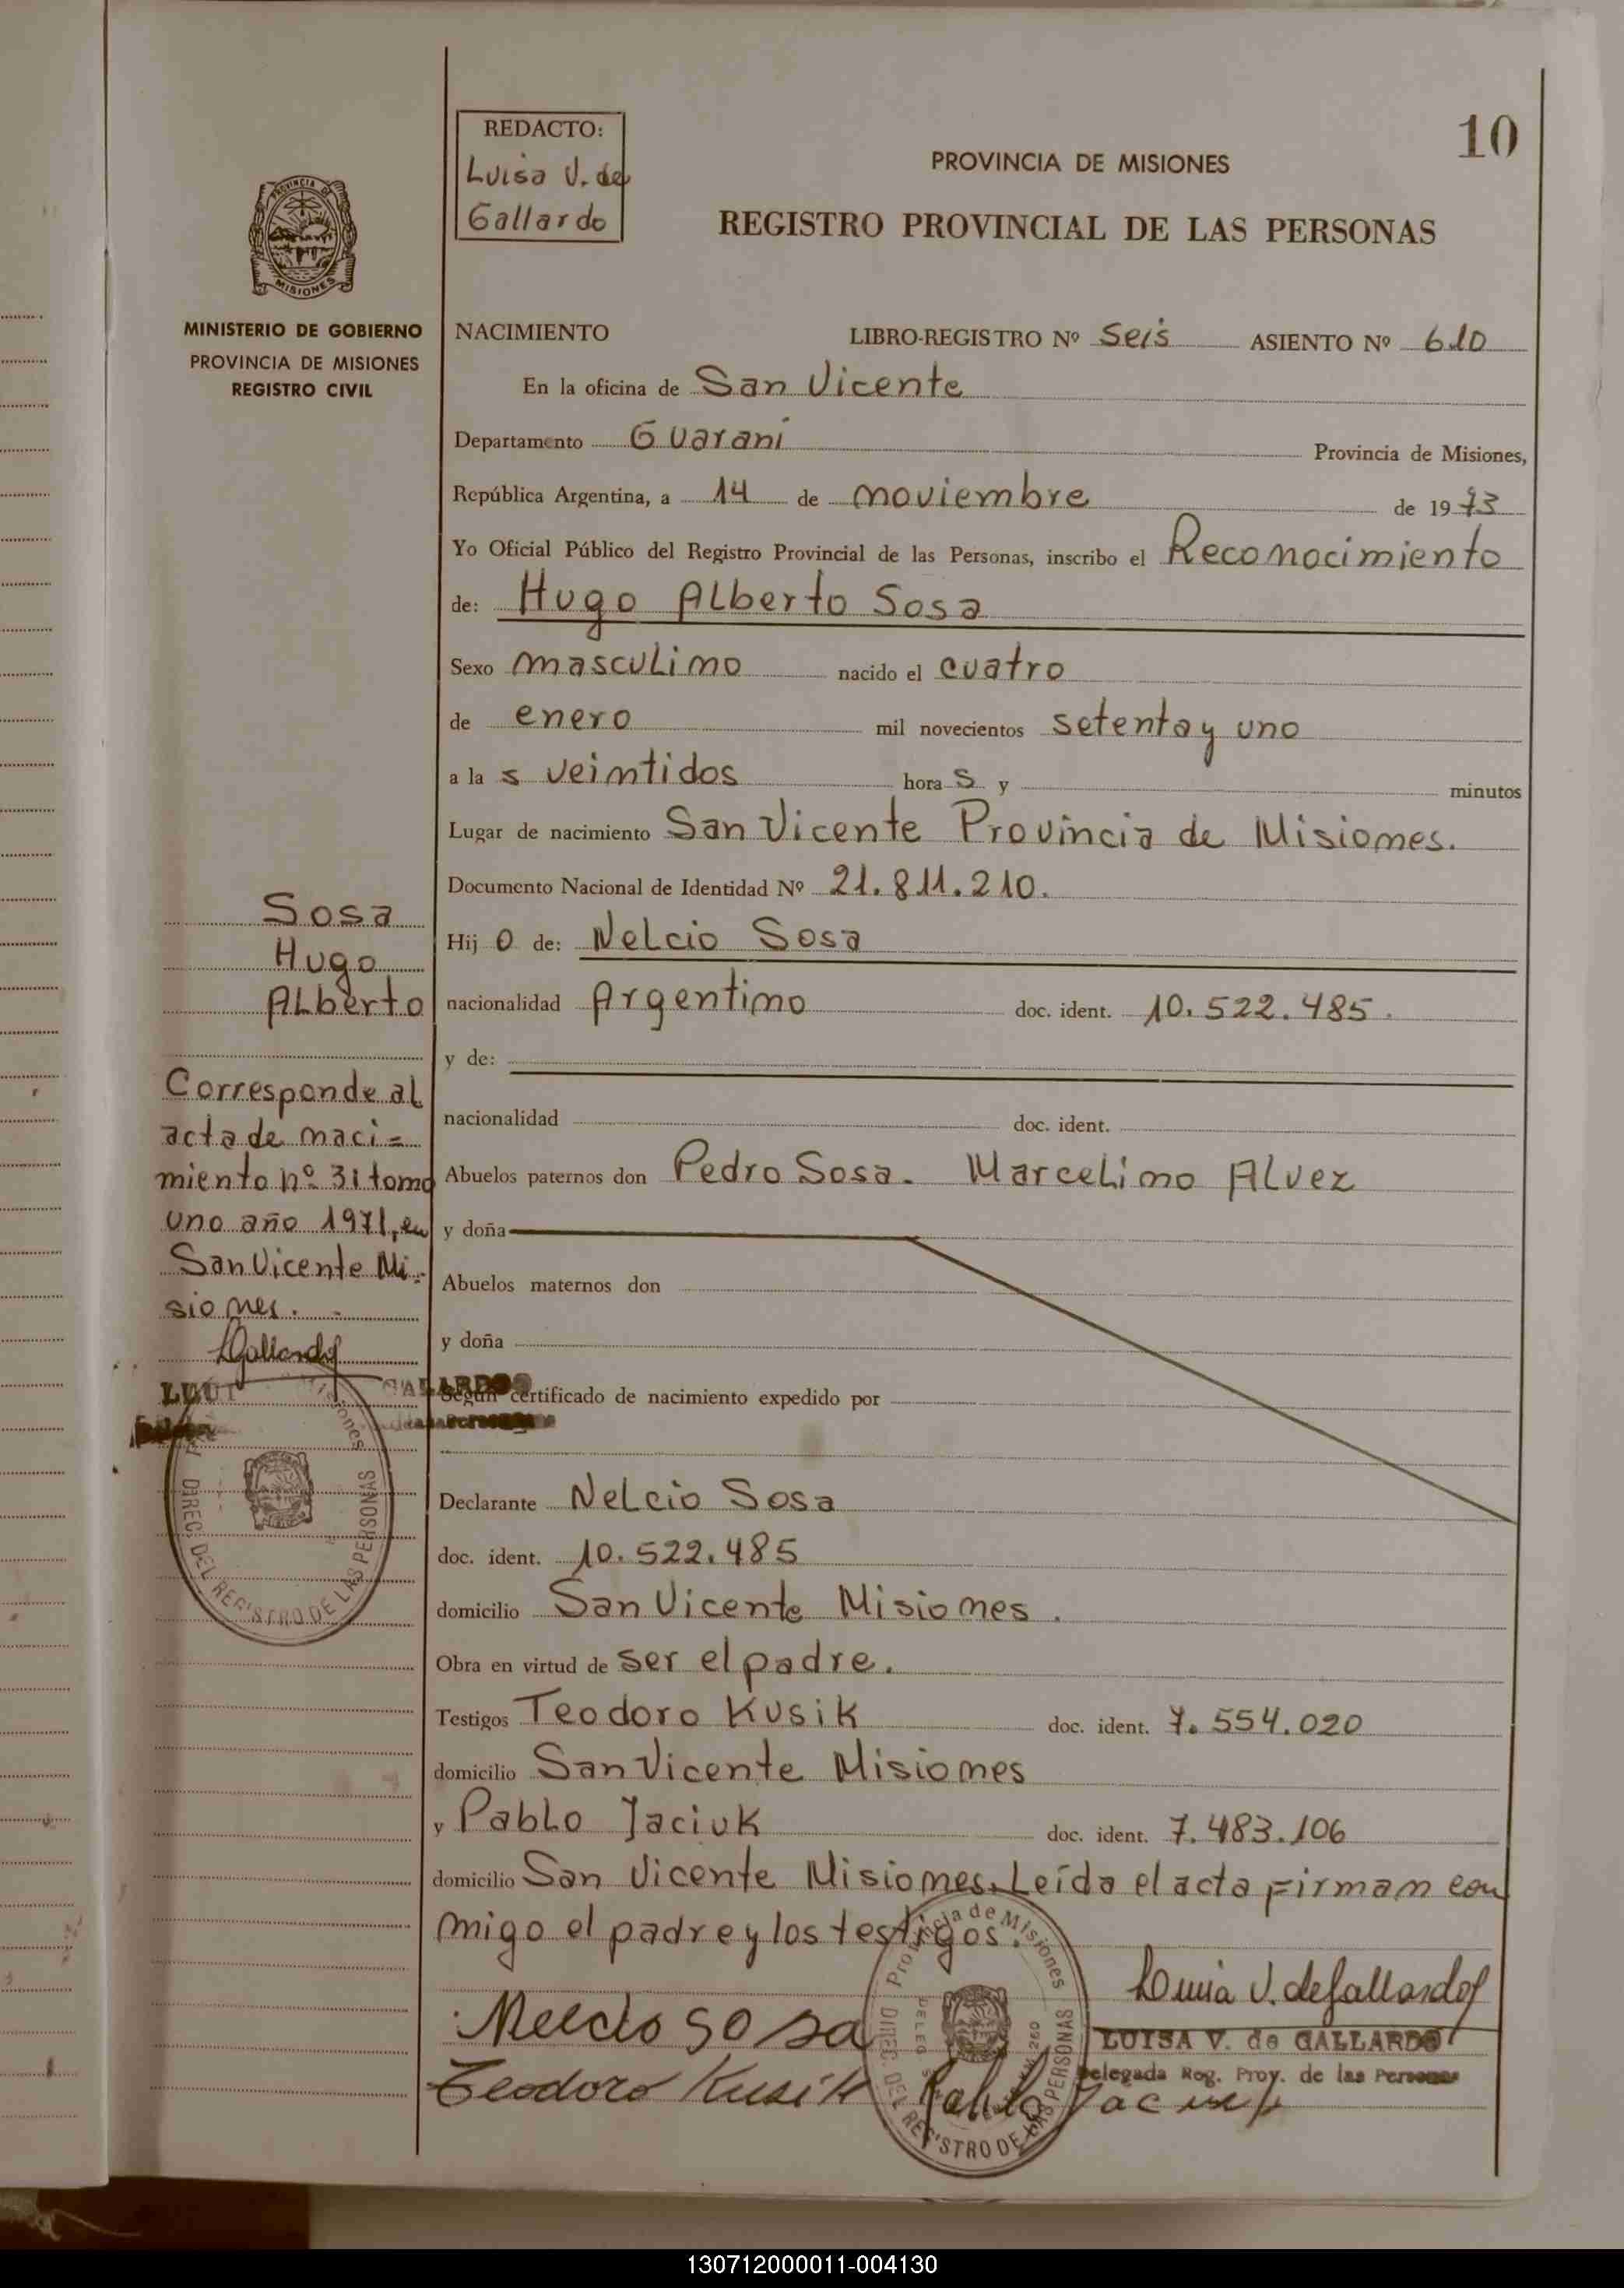 10
REDACTO:
Luisa V. de
Gallardo
PROVINCIA DE MISIONES
REGISTRO PROVINCIAL DE LAS PERSONAS
PROVINCIA DE
MISIONES
MINISTERIO DE GOBIERNO
PROVINCIA DE MISIONES
REGISTRO CIVIL
NACIMIENTO LIBRO-REGISTRO Nº Seis ASIENTO Nº 610
En la oficina de San Vicente
Departamento Guaraní Provincia de Misiones,
República Argentina, a 14 de noviembre de 1973
Yo Oficial Público del Registro Provincial de las Personas, inscribo el Reconocimiento
de: Hugo Alberto Sosa
Sexo masculino nacido el cuatro
de enero mil novecientos setenta y uno
a la s veintidos hora s y minutos
Lugar de nacimiento San Vicente Provincia de Misiones.
Documento Nacional de Identidad Nº 21.811.210.
Hij o de: Nelcio Sosa
nacionalidad Argentino doc. ident. 10.522.485.
y de:
nacionalidad doc. ident.
Abuelos paternos don Pedro Sosa. Marcelino Alvez
y doña
Abuelos maternos don
y doña
Según certificado de nacimiento expedido por
Declarante Nelcio Sosa
doc. ident. 10.522.485
domicilio San Vicente Misiones.
Obra en virtud de ser el padre.
Testigos Teodoro Kusik doc. ident. 7.554.020
domicilio San Vicente Misiones
y Pablo Jaciuk doc. ident. 7.483.106
domicilio San Vicente Misiones. Leída el acta firman con
migo el padre y los testigos.
Sosa
Hugo
Alberto
Corresponde al
acta de naci=
miento nº 31 tomo
uno año 1971, en
San Vicente Mi=
siones.
LGallardo
GALLARDO
Misiones
DIREC. DEL REGISTRO DE LAS PERSONAS
Provincia de Misiones
DIREC. DEL REGISTRO DE LAS PERSONAS
Luisa V. de Gallardo
Nelcio Sosa
LUISA V. de GALLARDO
Delegada Reg. Prov. de las Personas
Teodoro Kusik Pablo Jaciuk
130712000011-004130